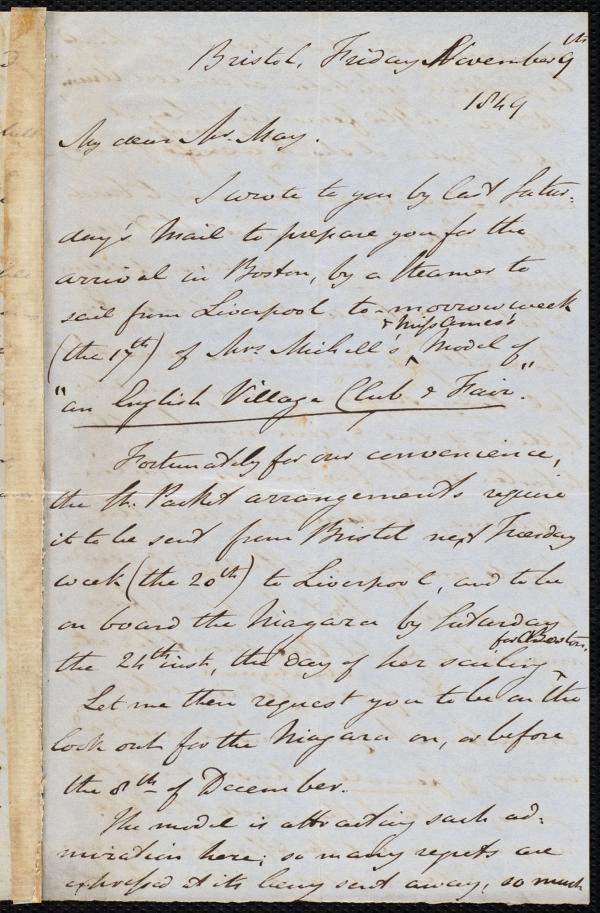 Bristol, Friday November 9th
1849
My dear Mr. May.
I wrote to you by last Satur-
day's Mail to prepare you for the
arrival in Boston, by a Steamer to
sail from Liverpool to-morrow week
& Miss James's
(the 17th) of Mrs. Michell's ^ Model of
"an English Village Club & Fair."
Fortunately for our convenience,
the St. Packet arrangements require
it to be sent from Bristol next Tuesday
week (the 20th) to Liverpool, and to be
on board the Niagara by Saturday
for Boston.
the 24th inst, the day of her sailing ^
Let me then request you to be on the
look out for the Niagara on, or before
the 8th of December.
The model is attracting such ad-
miration here; so many regrets are
expressed at its being sent away, so much